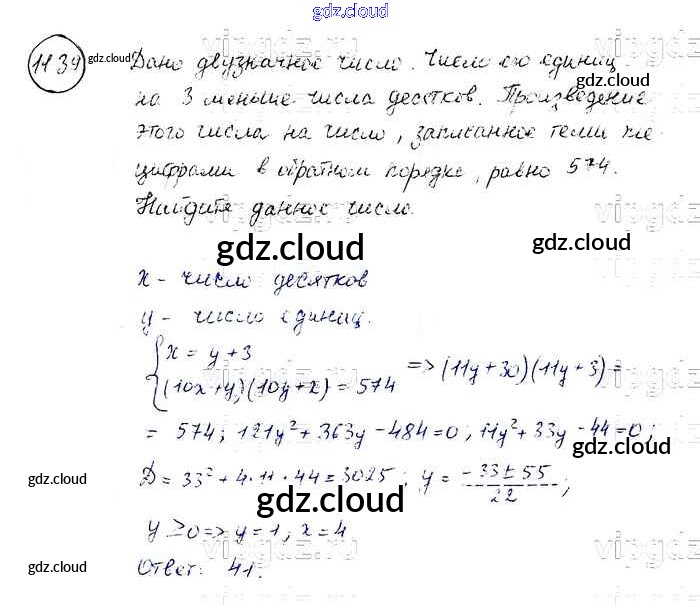 gdz.cloud
1134 gdz.cloud Дано двузначное число. Число его единиц
gdz.cloud
на 3 меньше числа десятков. Произведение
этого числа на число, записанное теми же
цифрами в обратном порядке, равно 574.
Найдите данное число.
gdz.cloud gdz.cloud
x - число десятков
y - число единиц.
{x = y + 3
{(10x + y)(10y + x) = 574 => (11y + 30)(11y + 3) =
= 574; 121y² + 363y - 484 = 0, 11y² + 33y - 44 = 0;
gdz.cloud
gdz.cloud D = 33² + 4 · 11 · 44 = 3025; y = (-33 ± 55)/22;
gdz.cloud
y ≥ 0 => y = 1; x = 4
gdz.cloud Ответ: 41. gdz.cloud